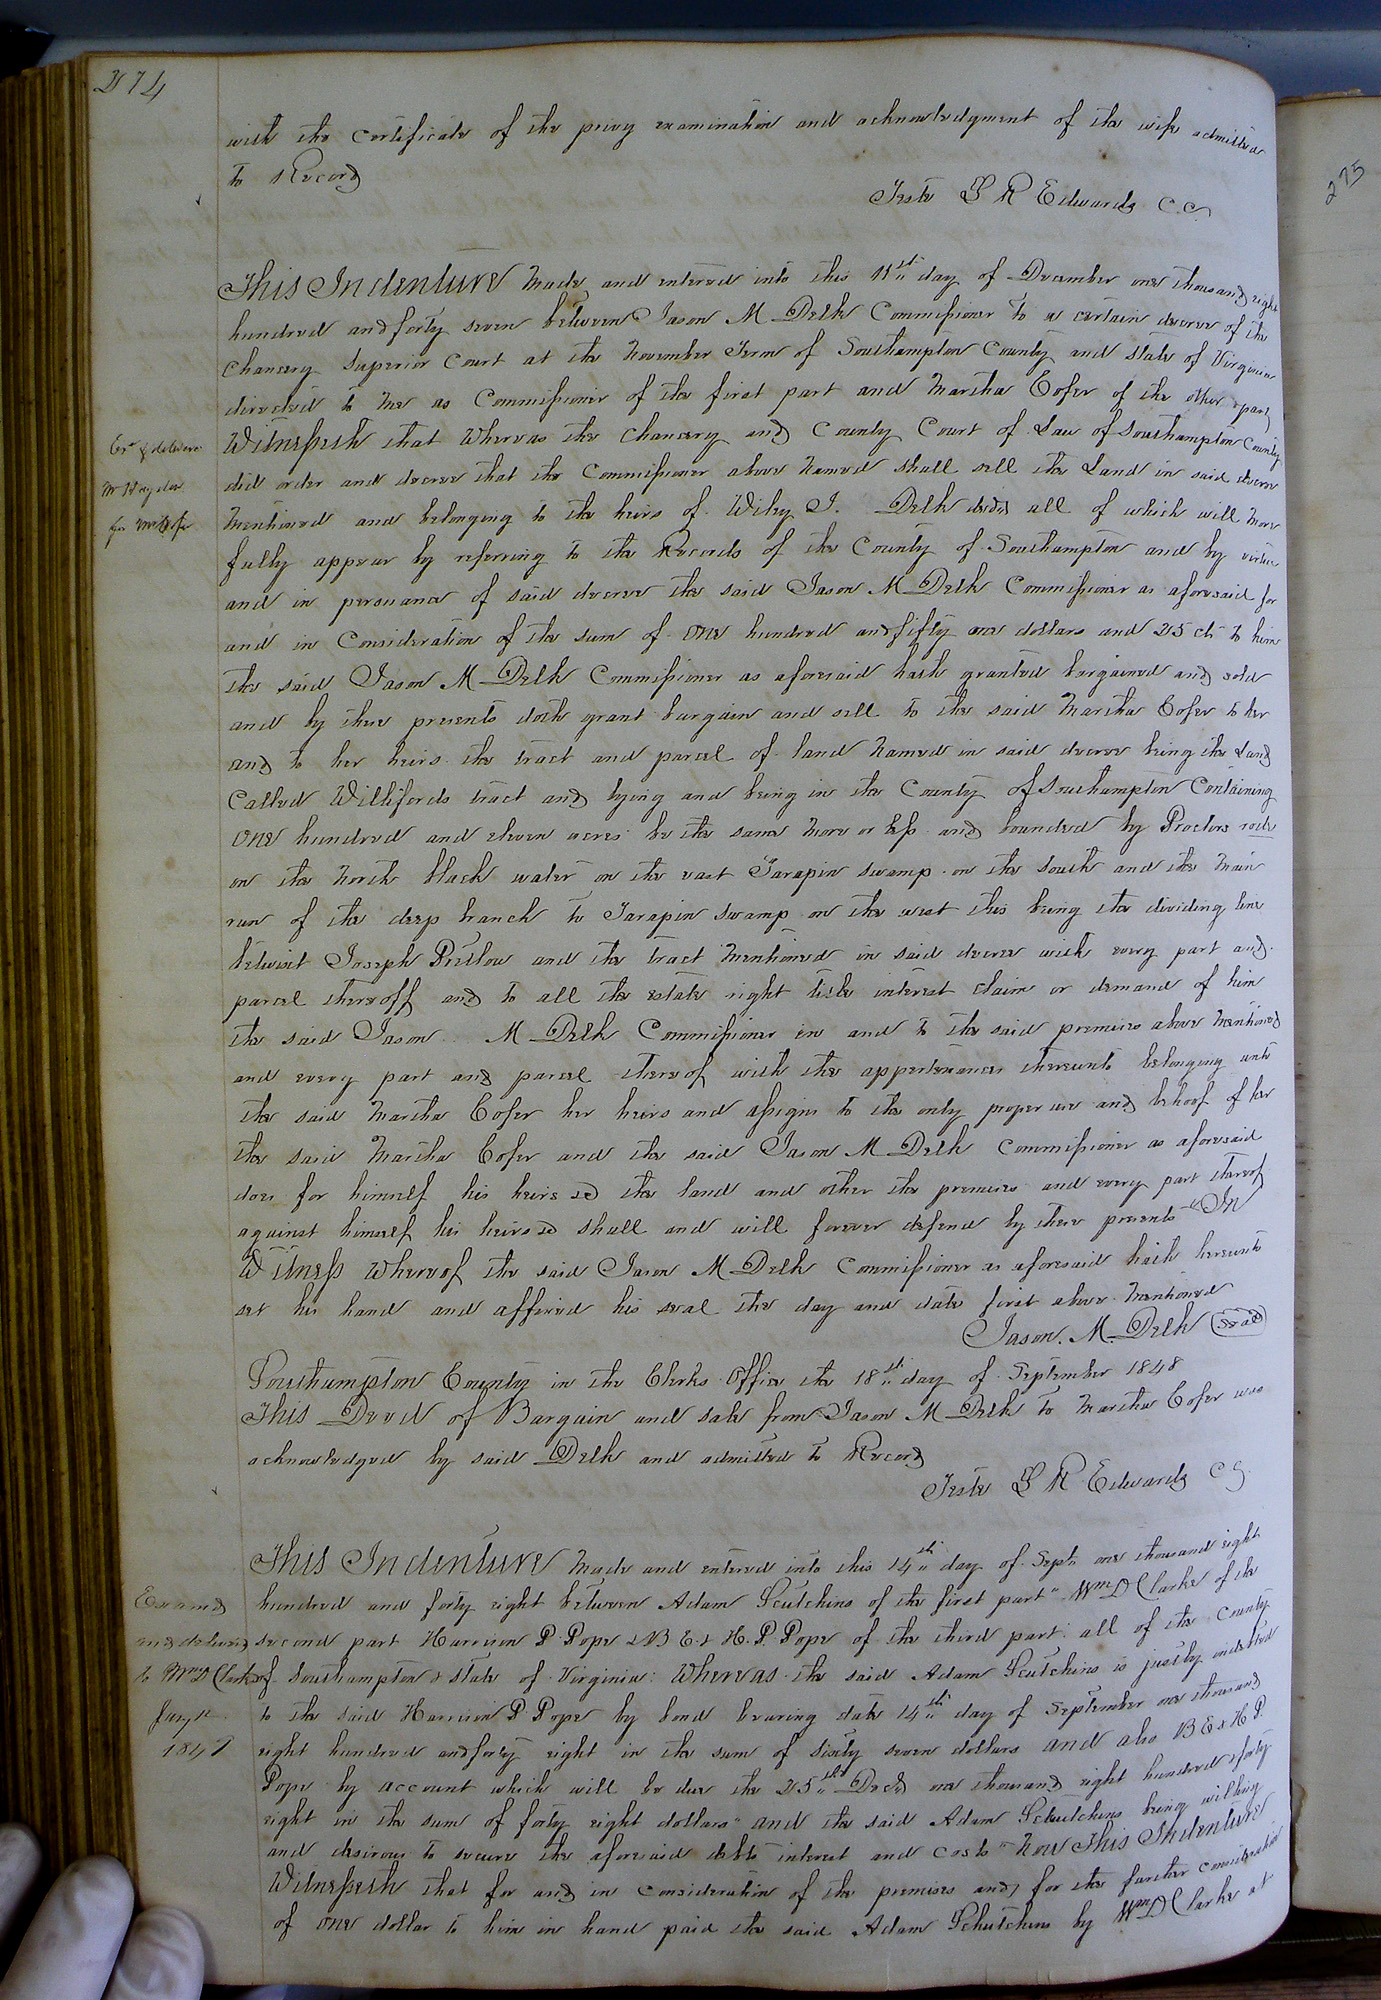 274
with the Certificate of the privy examination and acknowledgment of the wife admitted
to Record
Teste L R Edwards C.C.
This Indenture Made and entered into this 11st day of December one thousand eight
hundred and forty seven between Jason M Delk Commissioner to a certain decree of the
Chancery Superior Court at the November Term of Southampton County and state of Virginia
directed to me as Commissioner of the first part and Martha Cofer of the other part
Witnesseth that Whereas the Chancery and County Court of Law of Southampton County
did order and decree that the Commissioner above named shall sell the Land in said decree
Mentioned and belonging to the heirs of Wiley J. Delk decd all of which will more
fully appear by referring to the Records of the County of Southampton and by virtue
and in persuance of said decree the said Jason M Delk Commissioner as aforesaid for
and in Consideration of the sum of one hundred and fifty one dollars and 25 cts to him
the said Jason M Delk Commissioner as aforesaid hath granted bargained and sold
and by these presents doth grant bargain and sell to the said Martha Cofer to her
and to her heirs the tract and parcel of land Named in said decree being the Land
Called Willifords tract and lying and being in the County of Southampton Containing
one hundred and eleven acres be the same more or less and bounded by Proctors
on the North black water on the east Tarapin swamp on the south and the main
run of the deep branch to Tarapin swamp on the west this being the dividing line
betwixt Joseph Pretlow and the tract Mentioned in said decree with every part and
parcel thereoff and to all the estate right title interest claim or demand of him
the said Jason M Delk Commissioner in and to the said premises above Mentioned
and every part and parcel thereof with the appertenances thereunto belonging unto
the said Martha Cofer her heirs and assigns to the only proper use and behoof of her
the said Martha Cofer and the said Jason M Delk Commissioner as aforesaid
does for himself his heirs &c the land and other the premises and every part thereof
against himself his heirs &c shall and will forever defend by these presents "In
Witness Whereof the said Jason M Delk Commissioner as aforesaid hath hereunto
set his hand and affixed his seal the day and date first above Mentioned
Jason. M. Delk (Seal)
Southampton County in the Clerks Office the 18th day of September 1848
This Deed of Bargain and sale from Jason M Delk to Martha Cofer was
acknowledged by said Delk and admitted to Record
Teste L R Edwards CC
This Indenture Made and entered into this 14th day of Sept. one thousand eight
hundred and forty eight between Adam Scutchins of the first part " Wm D Clarke of the
second part Harrison P Pope & B E & H. P. Pope of the third part all of the County
of Southampton & state of Virginia: Whereas the said Adam Scutchins is justly indebted
to the said Harrison P Pope by bond bearing date 14th day of September one thousand
eight hundred and forty eight in the sum of sixty seven dollars and also B E & H P.
Pope by account which will be due the 25th Decr one thousand eight hundred & forty
eight in the sum of forty eight dollars" and the said Adam Scutchins being willing
and desirous to secure the aforesaid debts interest and costs " Now This Indenture
Witnesseth that for and in consideration of the premises and for the further consideration
of one dollar to him in hand paid the said Adam Schutchins by Wm D Clarke at
Exd & deliverd
for M Cofer
Examd
and deliverd
to Wm D Clarke
1849
275